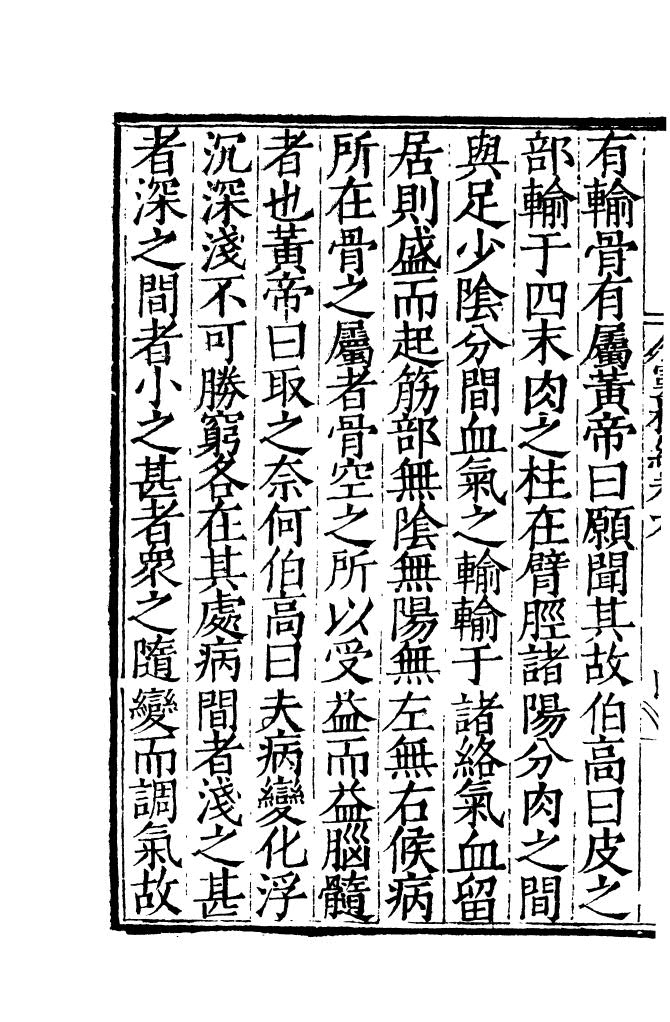 有輸骨有屬黃帝曰願聞其故伯高曰皮之
部輸于四末肉之柱在臂脛諸陽分肉之間
與足少陰分間血氣之輸輸于諸絡氣血留
居則盛而起筋部無陰無陽無左無右候病
所在骨之屬者骨空之所以受益而益腦髓
者也黃帝曰取之奈何伯高曰夫病變化浮
沉深淺不可勝窮各在其處病間者淺之甚
者深之間者小之甚者眾之隨變而調氣故